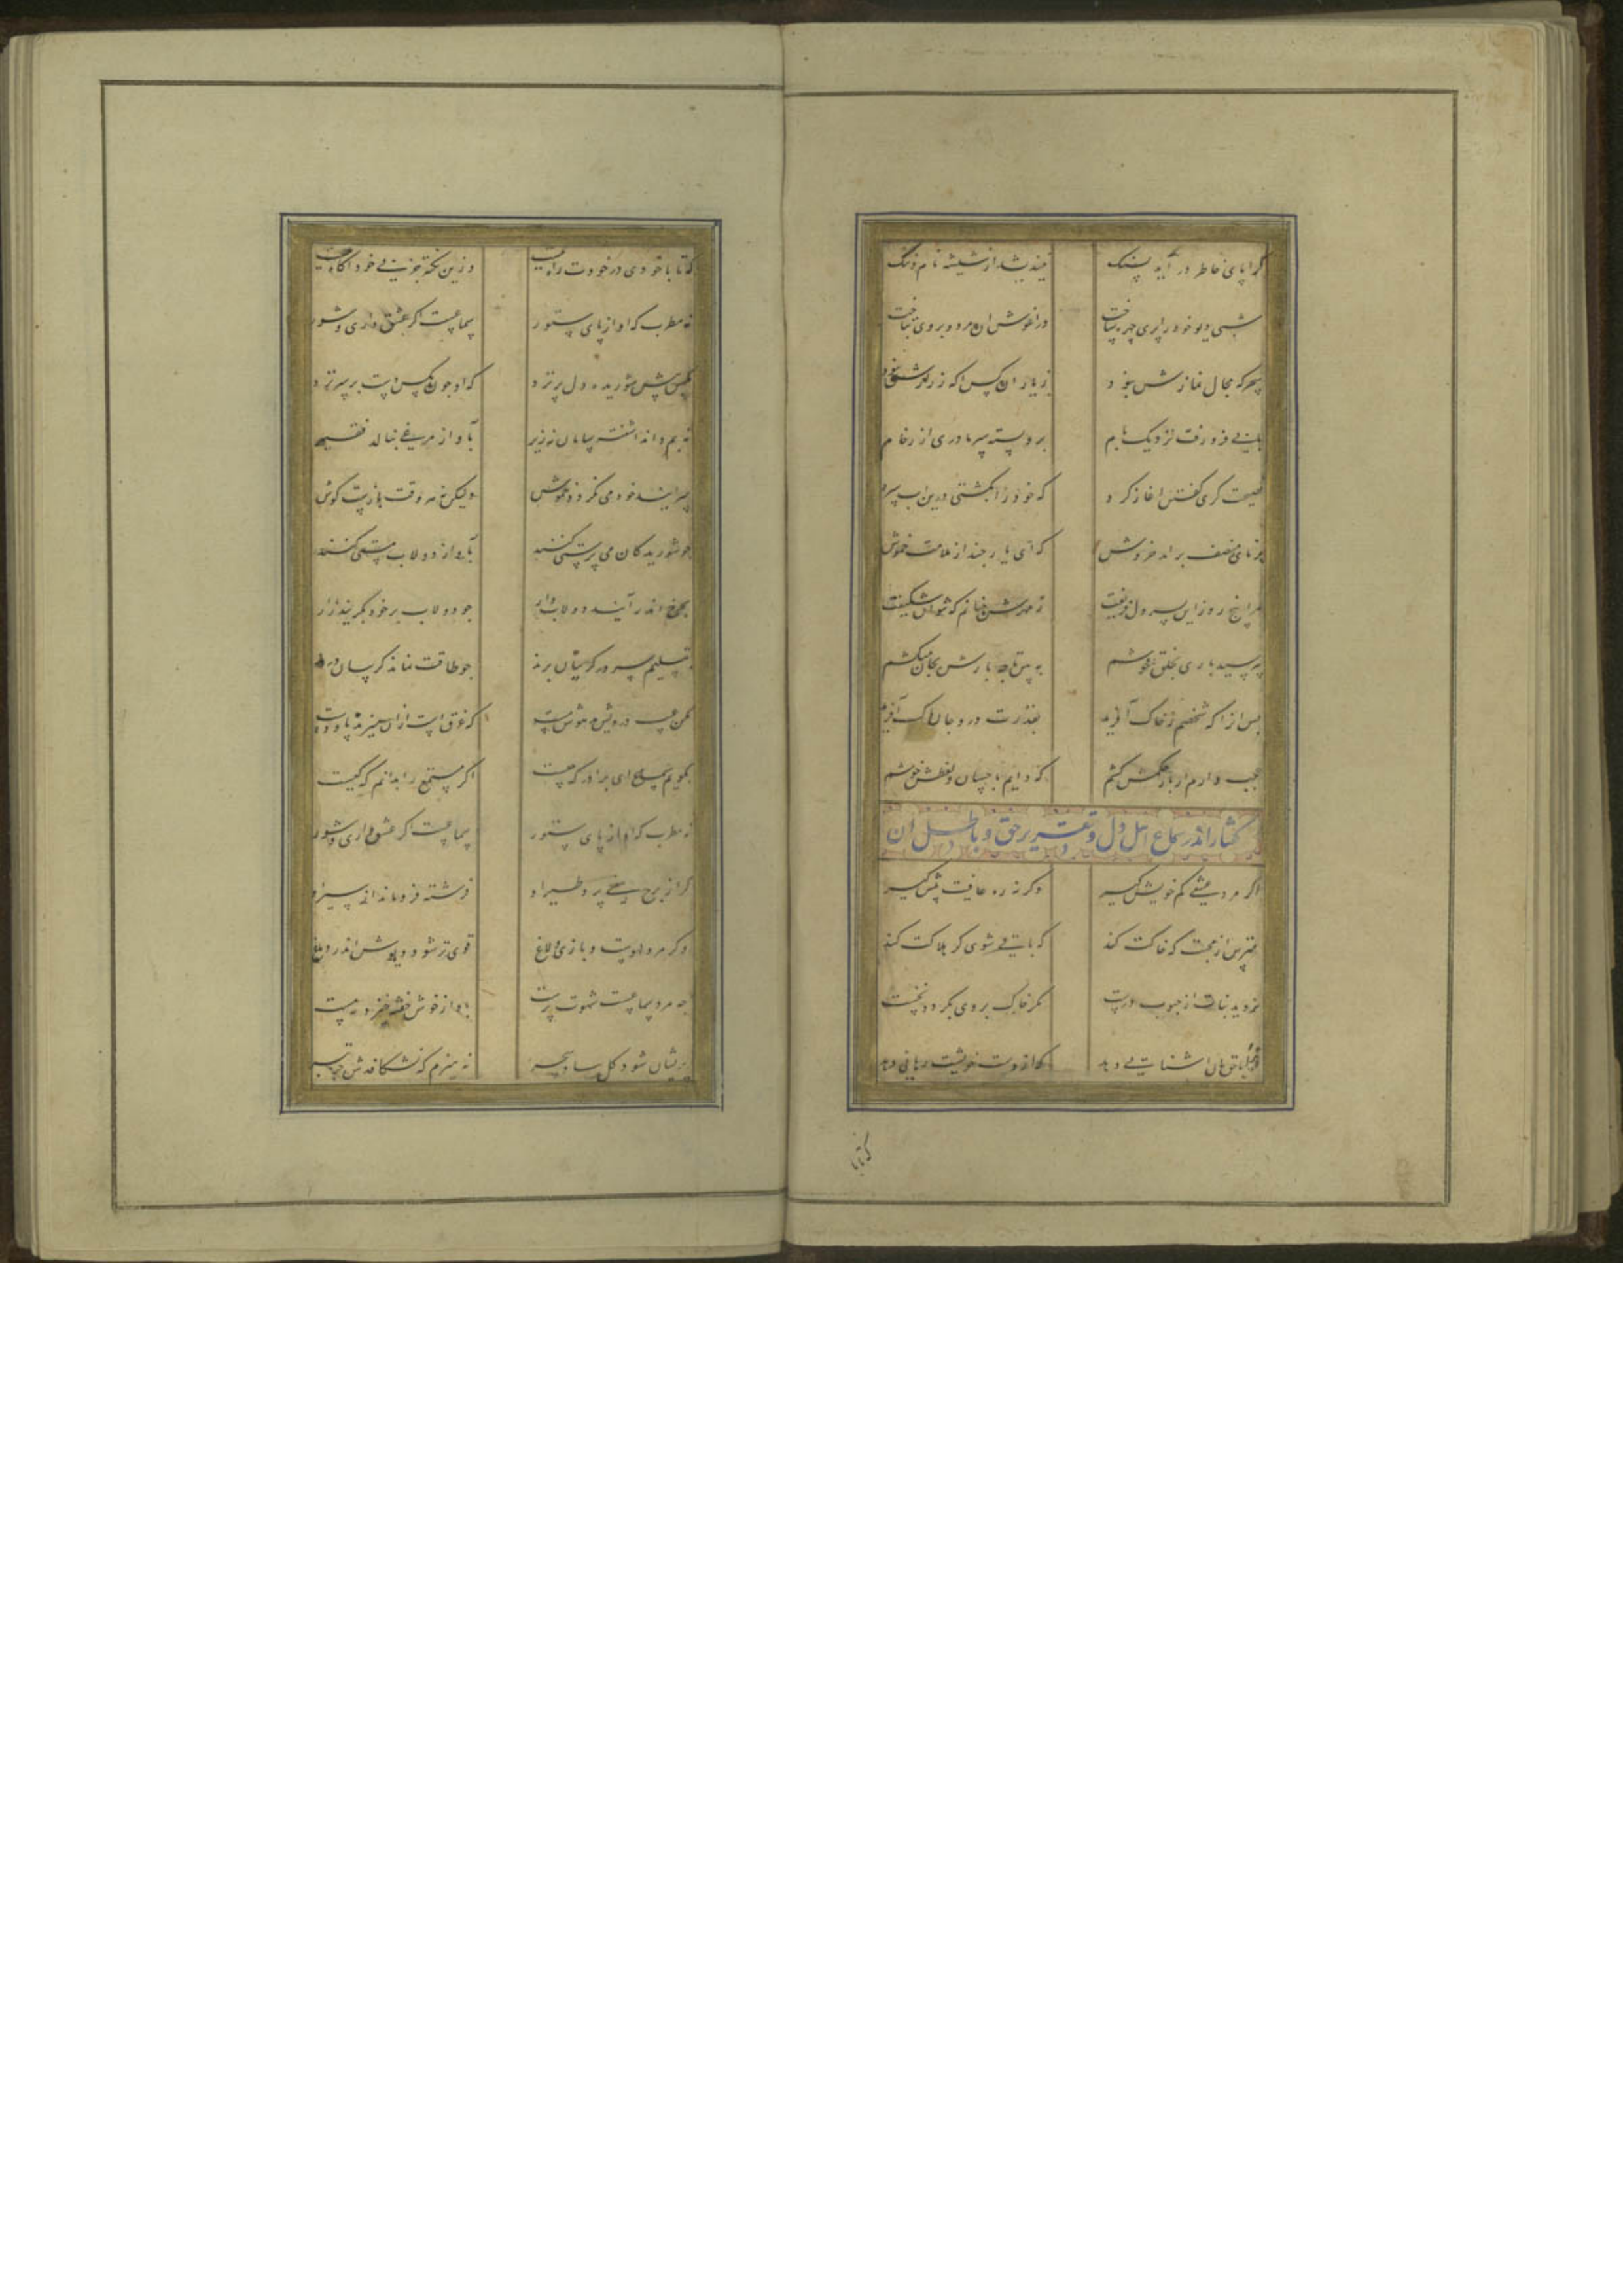 کرا پای خاطر در آید بسنک نیندیشد از شیشه نام و ننک
شبی دیو خود را پری چهره ساخت در اغوش ان مرد و بروی بتاخت
سحرکه مجال نمازش نبود ز یاران کس اکه ز رازش نبود
بابی فرو رفت نزدیک بام برو بسته سرما دری از رخام
نصیحت کری کفتن اغاز کرد که خود را بکشتی درین اب سرد
برنای منصف برامد خروش که ای یار چند از ملامت خموش
مرا پنج روز این پسر دل فریفت ز مهرش چنانم که نتوان شکیفت
نپرسید باری بخلق خوشم ببین تا چه بارش بجان میکشم
بس انرا که شخصم ز خاک آفرید بقدرت درو جان پاک آفرید
عجب دارم ار بار حکمش کشم که دایم باحسان و لطفش خوشم
کفتار اندر سماع اهل دل و تقریر حق و باطل ان
اکر مرد عشقی کم خویش کیر وکرنه ره عافیت پیش کیر
مترس از محبت که خاکت کند که باقی شوی کر هلاکت کند
نروید نبات از حبوب درست مکر خاک بر وی بکردد نخست
ترا با حق ان اشنایی دهد که از دست خویشت رهایی دهد
که تا با
که تا با خودی در خودت راه نیست وزین نکته جز بی خود اکاه نیست
نه مطرب که اواز پای ستور سماعست اکر عشق داری و شور
مکس پیش شوریده دل پر نزد که او چون مکس دست بر سر نزد
نه بم داند اشفته سامان نه زیر بآواز مرغی بنالد فقیر
سراینده خود می نکردد خموش ولیکن نه هر وقت بازست کوش
چو شوریدکان می پرستی کنند بآواز دولاب مستی کنند
بچرخ اندر آیند دولاب وار چو دولاب بر خود بکریند زار
بتسلیم سر در کریبان برند چو طاقت نماند کریبان درند
مکن عیب درویش مدهوش مست که غرق است ازان میزند پا و دست
بکویم سماع ای برادر که چیست اکر مستمع را بدانم که کیست
نه مطرب که اواز پای ستور سماعست اکر عشق داری و شور
کر از برج معنی پرد طیر او فرشته فرو ماند از سیر او
وکر مرد لهوست و بازی و لاغ قوی تر شود دیوش اندر دماغ
چه مرد سماعست شهوت پرست باواز خوش خفته خیزد نه مست
پریشان شود کل بباد سحر نه هیزم که نشکافدش جز تبر